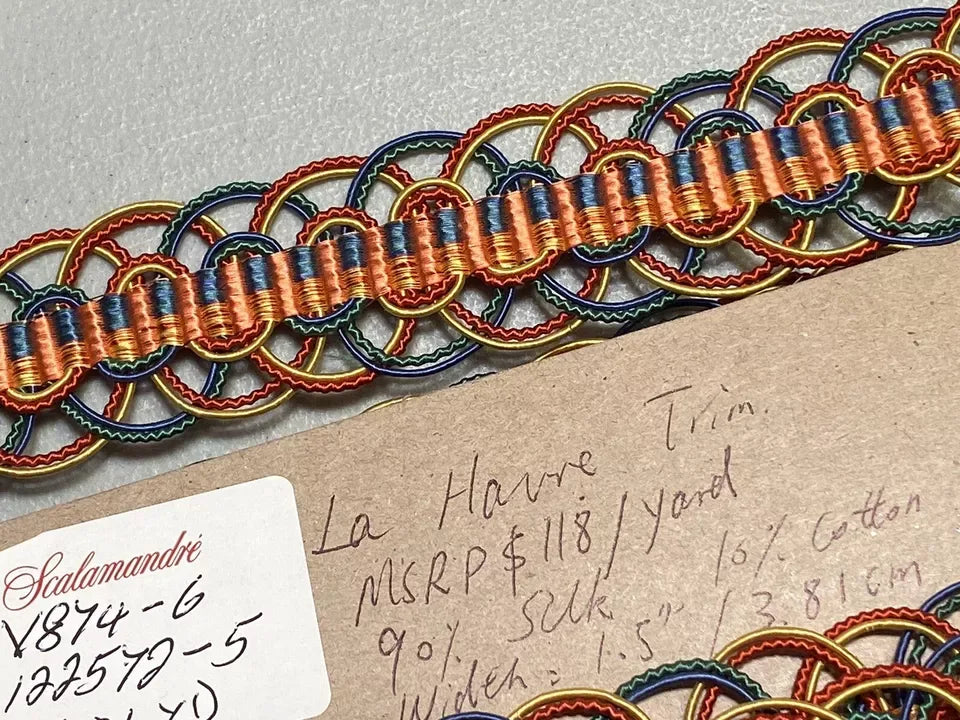 La Havre Trim.
MSRP $118/yard
90% Silk 10% Cotton
Width: 1.5" / 3.81cm
Scalamandré
V874-6
122572-5
YD